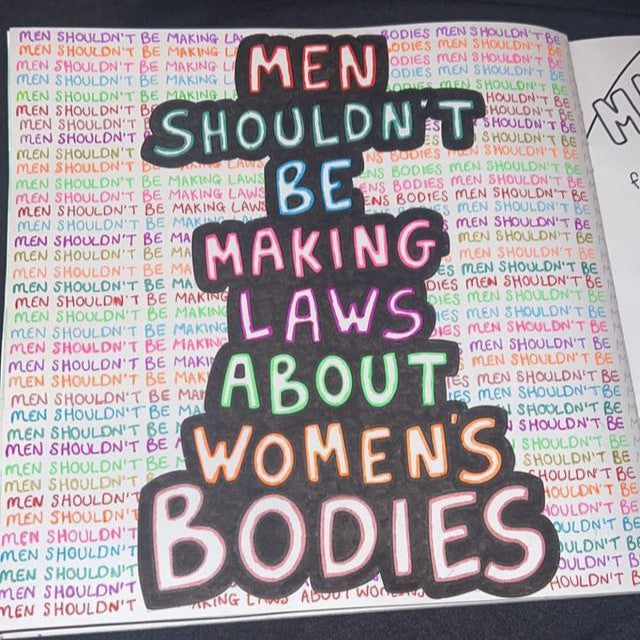 MEN
SHOULDN'T
BE
MAKING
LAWS
ABOUT
WOMEN'S
BODIES
MEN SHOULDN'T BE MAKING BODIES MEN SHOULDN'T BE
MEN SHOULDN'T BE MAKING MEN SHOULDN'T BE
MEN SHOULDN'T BE MAKING MEN SHOULDN'T BE
MEN SHOULDN'T BE MAKING MEN SHOULDN'T BE
MEN SHOULDN'T BE MAKING MEN SHOULDN'T BE
MEN SHOULDN'T BE BE
MEN SHOULDN'T BE
MEN SHOULDN'T SHOULDN'T BE
MEN SHOULDN'T SHOULDN'T BE
MEN SHOULDN'T BE LAWS BODIES MEN SHOULDN'T BE
MEN SHOULDN'T BE MAKING LAWS BODIES MEN SHOULDN'T BE
MEN SHOULDN'T BE MAKING LAWS BODIES MEN SHOULDN'T BE
MEN SHOULDN'T BE MAKING LAWS BODIES MEN SHOULDN'T BE
MEN SHOULDN'T BE MEN SHOULDN'T BE
MEN SHOULDN'T BE MEN SHOULDN'T BE
MEN SHOULDN'T BE MEN SHOULDN'T BE
MEN SHOULDN'T BE MEN SHOULDN'T BE
MEN SHOULDN'T BE MEN SHOULDN'T BE
MEN SHOULDN'T BE MAKING MEN SHOULDN'T BE
MEN SHOULDN'T BE MAKING MEN SHOULDN'T BE
MEN SHOULDN'T BE MAKING MEN SHOULDN'T BE
MEN SHOULDN'T BE MAKING MEN SHOULDN'T BE
MEN SHOULDN'T BE MEN SHOULDN'T BE
MEN SHOULDN'T BE MEN SHOULDN'T BE
MEN SHOULDN'T BE MEN SHOULDN'T BE
MEN SHOULDN'T BE SHOULDN'T BE
MEN SHOULDN'T BE SHOULDN'T BE
MEN SHOULDN'T BE SHOULDN'T BE
MEN SHOULDN'T BE SHOULDN'T BE
MEN SHOULDN'T BE BE
MEN SHOULDN'T
MEN SHOULDN'T
MEN SHOULDN'T
MEN SHOULDN'T
MEN SHOULDN'T
MEN SHOULDN'T BE
MEN SHOULDN'T ABOUT